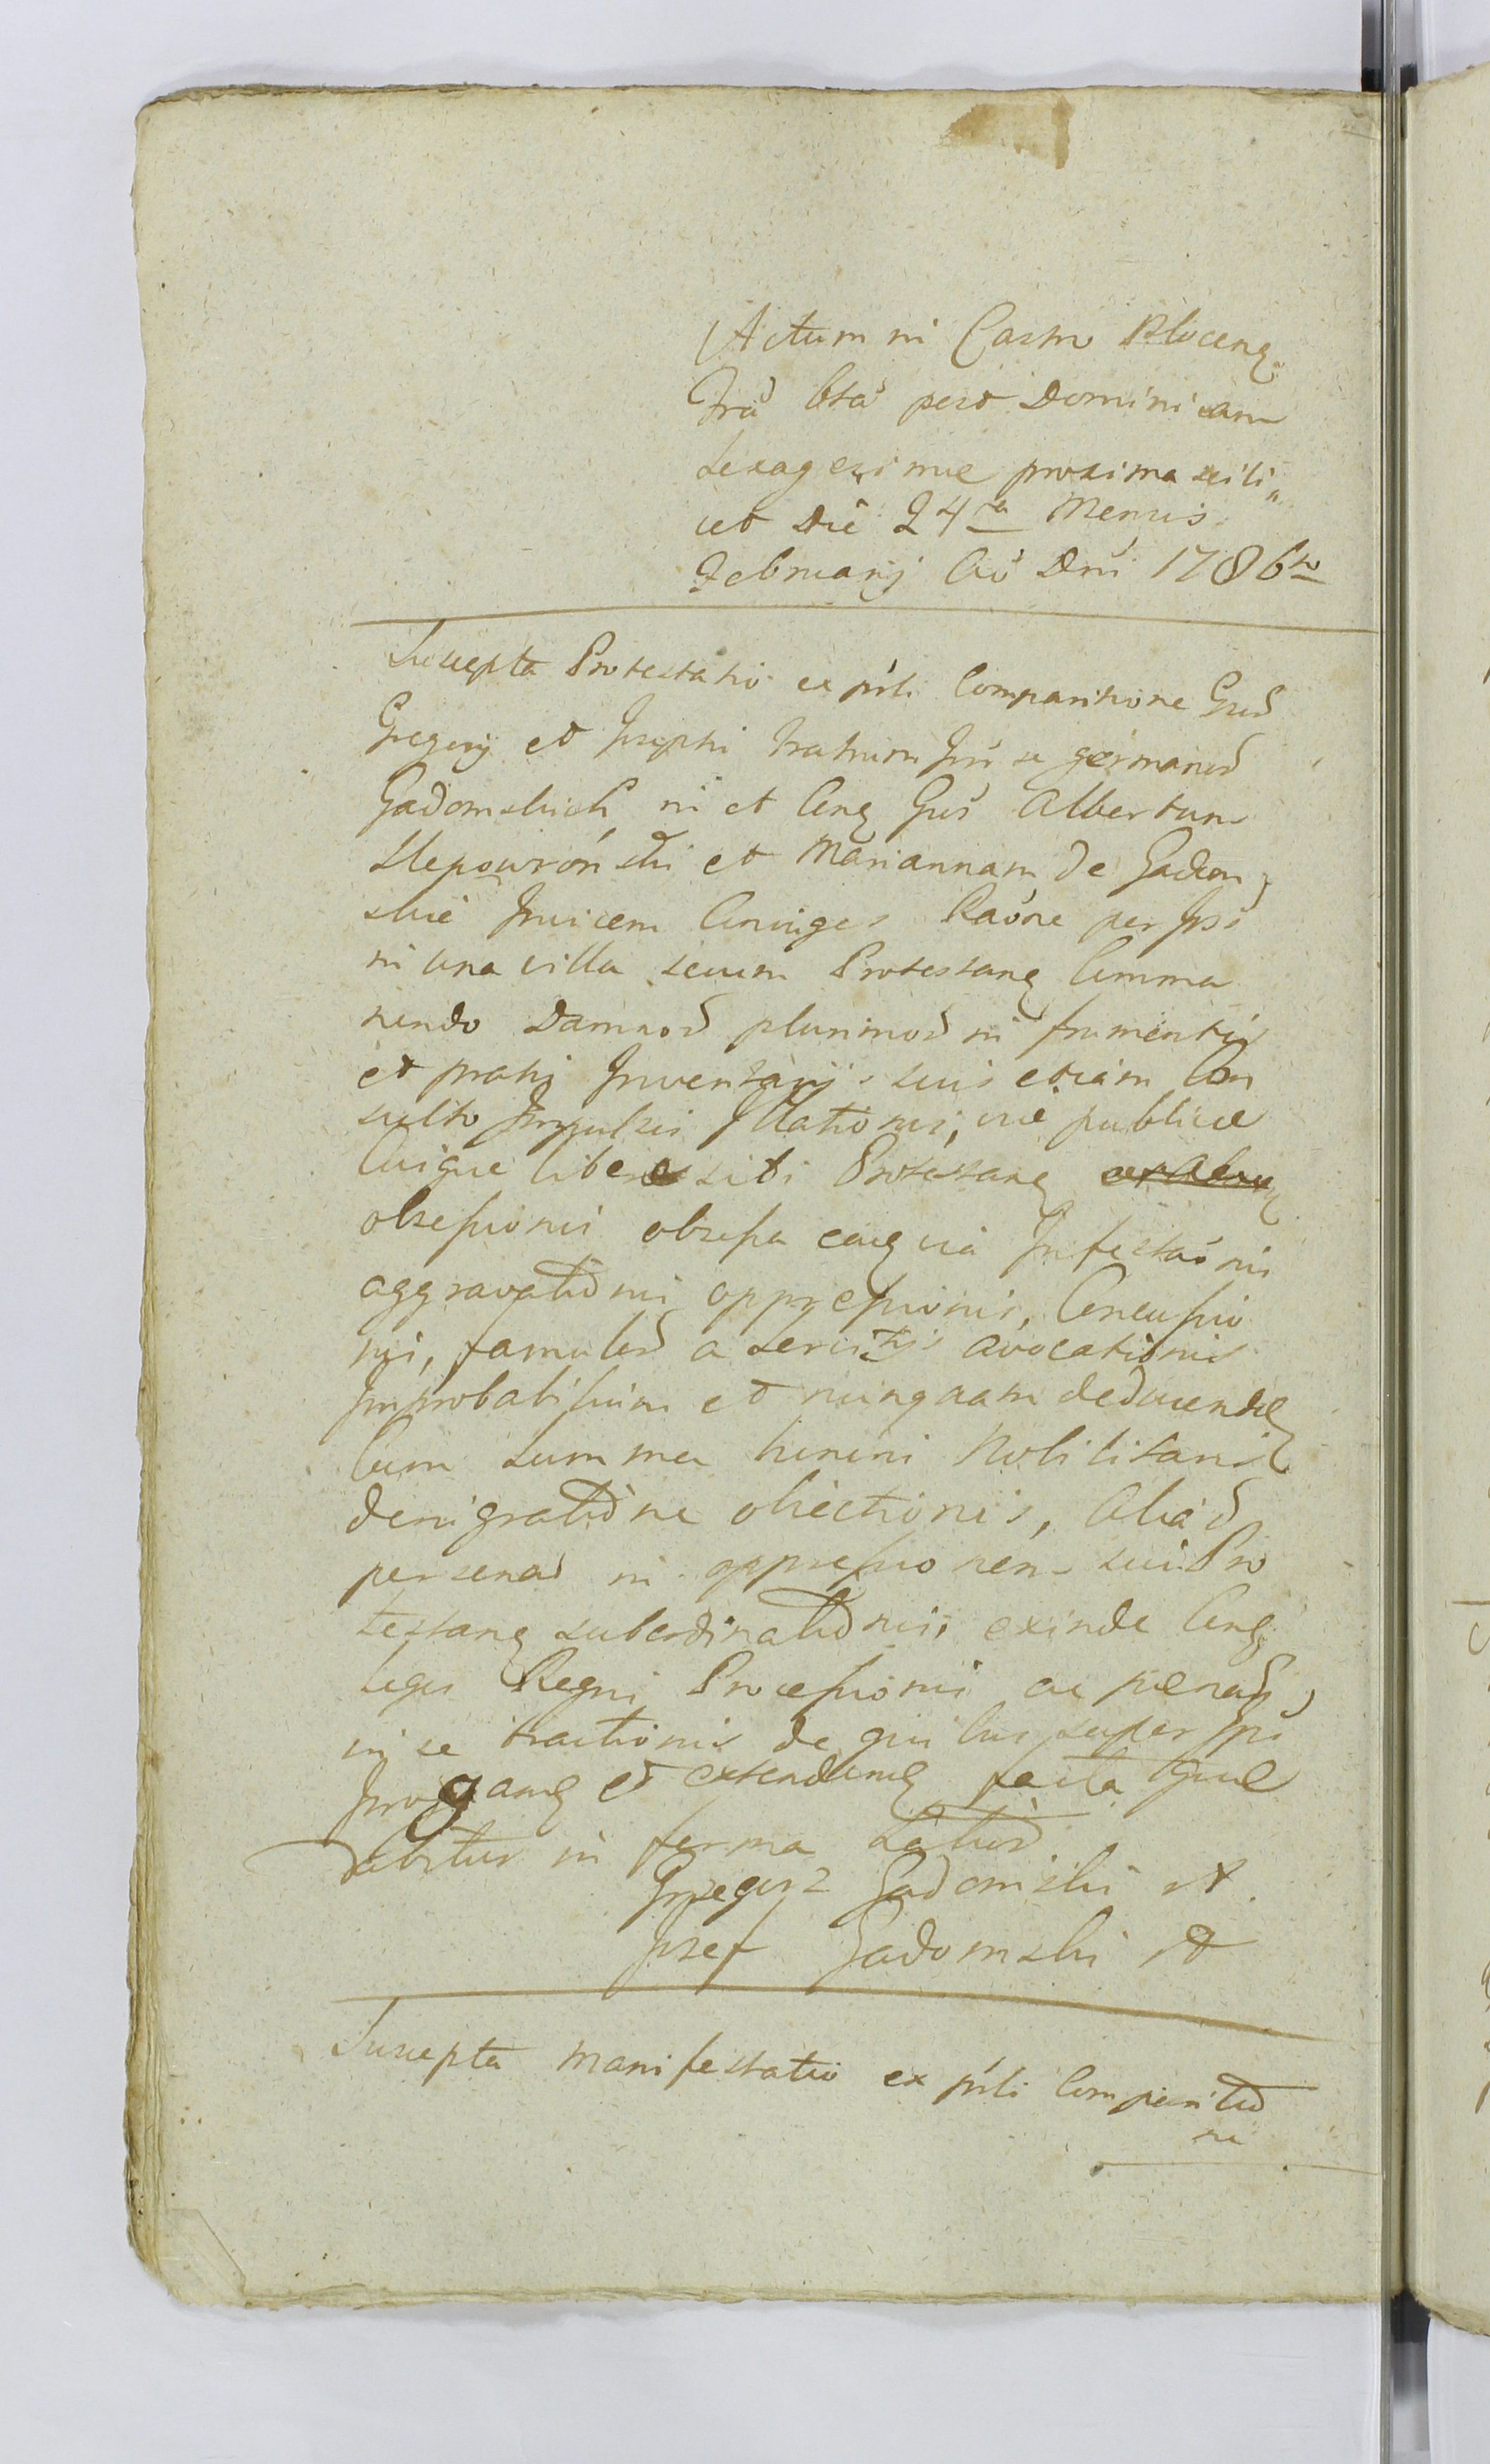 Actum in Castro Plocens
Fra 6ta post Dominicam
Sexagesimae proxima scili„
cet Die 24ta Mensis
Februarij Ao Dni 1786to
Suscepta Protestatio ex psti Comparitione Gsd
Gregorij et Josephi fratrum Int se germanod
Gadomskich in et Cong Gsos Albertum
Slepowroński et Mariannam de Gadom
skie Invicem Coniuges Raone per Ipsos
in una villa secum Protestang Comma
nendo Damnod plurimod in frumentis
et pratis Inventarijs suis etiam Con
sulto Impulsis Illationis, viae publicae
Cuique liberae sibi Protestang
obsessionis obsessa eaq via Infestaonis
aggravationis oppressionis, Concussio
nis, famulod a servitijs avocationis
Improbabilium et nunquam deducendae
Cum summa honoris Nobilitaris
denigratione obiectionis, Aliad
personad in oppressionem sui Pro
testang subordinationis, exinde Cong
leges Regni Processionis ac poenad
in se tractionis de quibus super Ipsos
Inrogang et extendeng facta quae
dabitur in forma Latiod
Grzegorz Gadomski A
Jozef Gadomski A
Suscepta Manifestatio ex psti Comparitio
ne